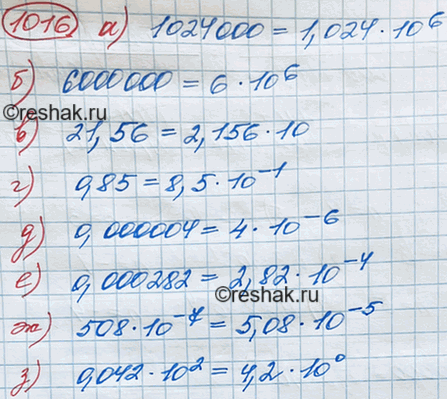 1016 а) 1024000 = 1,024 · 10⁶
б) 6000000 = 6 · 10⁶
©reshak.ru
в) 21,56 = 2,156 · 10
г) 0,85 = 8,5 · 10⁻¹
д) 0,000004 = 4 · 10⁻⁶
е) 0,000282 = 2,82 · 10⁻⁴
©reshak.ru
ж) 508 · 10⁻⁷ = 5,08 · 10⁻⁵
з) 0,042 · 10² = 4,2 · 10⁰